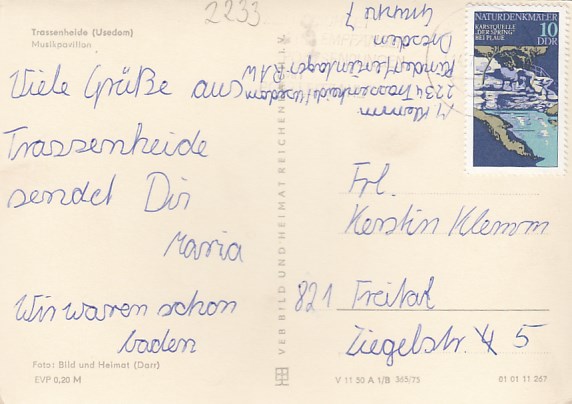 2233
Trassenheide (Usedom)
Musikpavillon
Viele Grüße aus
Trassenheide
sendet Dir
Maria
Wir waren schon
baden
Foto: Bild und Heimat (Darr)
EVP 0,20 M
M. Klemm
2234 Trassenheide/Usedom
Kinderferienlager R.A.W.
Dresden
7
VEB BILD UND HEIMAT REICHENBACH I. V.
NATURDENKMALER
KARSTQUELLE
„DER SPRING"
BEI PLAUE
10
DDR
Frl.
Kerstin Klemm
821 Freital
Ziegelstr. 5
V 11 50 A 1/B 365/75
01 01 11 267